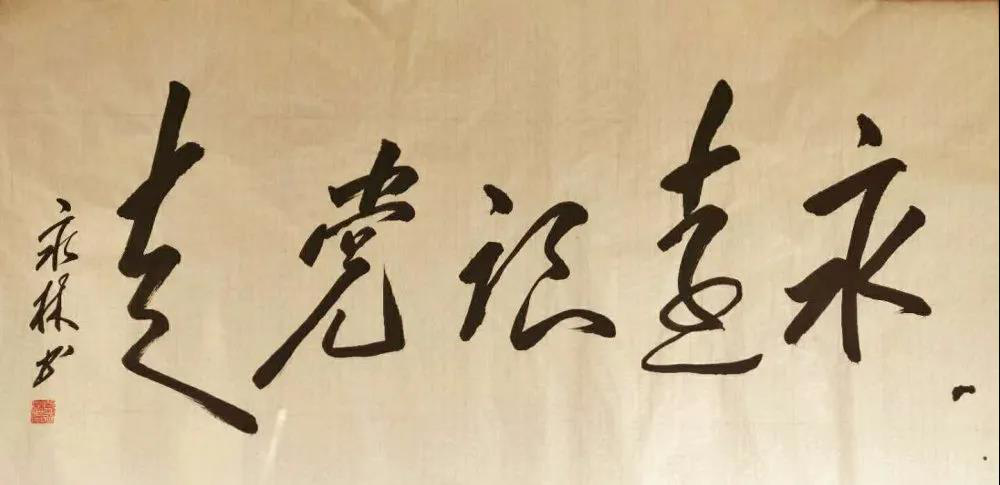 永远跟党走
永 书